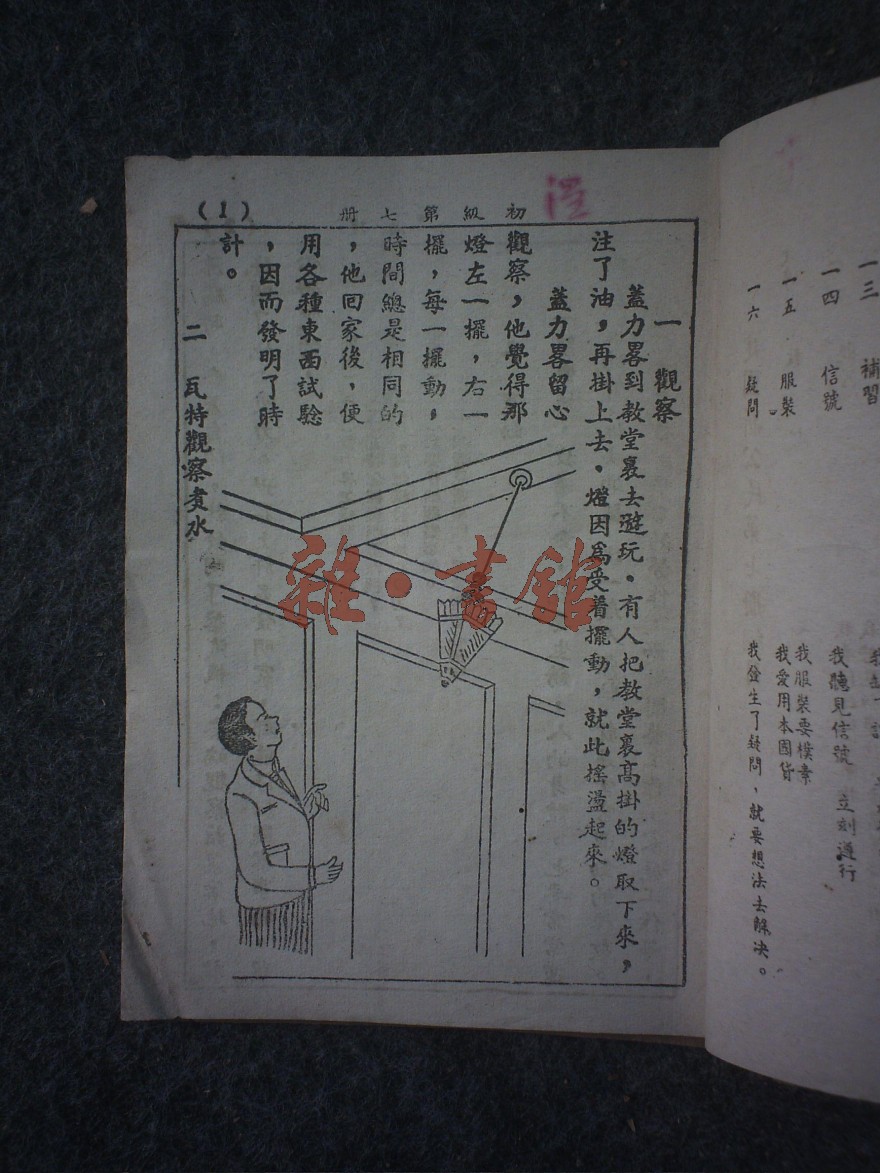 一三　補習
一四　信號　我聽見信號　立刻遵行
一五　服裝　我服裝要樸素
我愛用本國貨
一六　疑問　我發生了疑問、就要想法去解决。
初級第七册
(1)
一　觀察
蓋力畧到教堂裏去遊玩。有人把教堂裏高掛的燈取下來，
注了油，再掛上去。燈因爲受着擺動，就此搖盪起來。
蓋力畧留心
觀察，他覺得那
燈左一擺，右一
擺，每一擺動，
時間總是相同的
，他回家後，便
用各種東西試驗
，因而發明了時
計。
二　瓦特觀察煑水
雜·書館